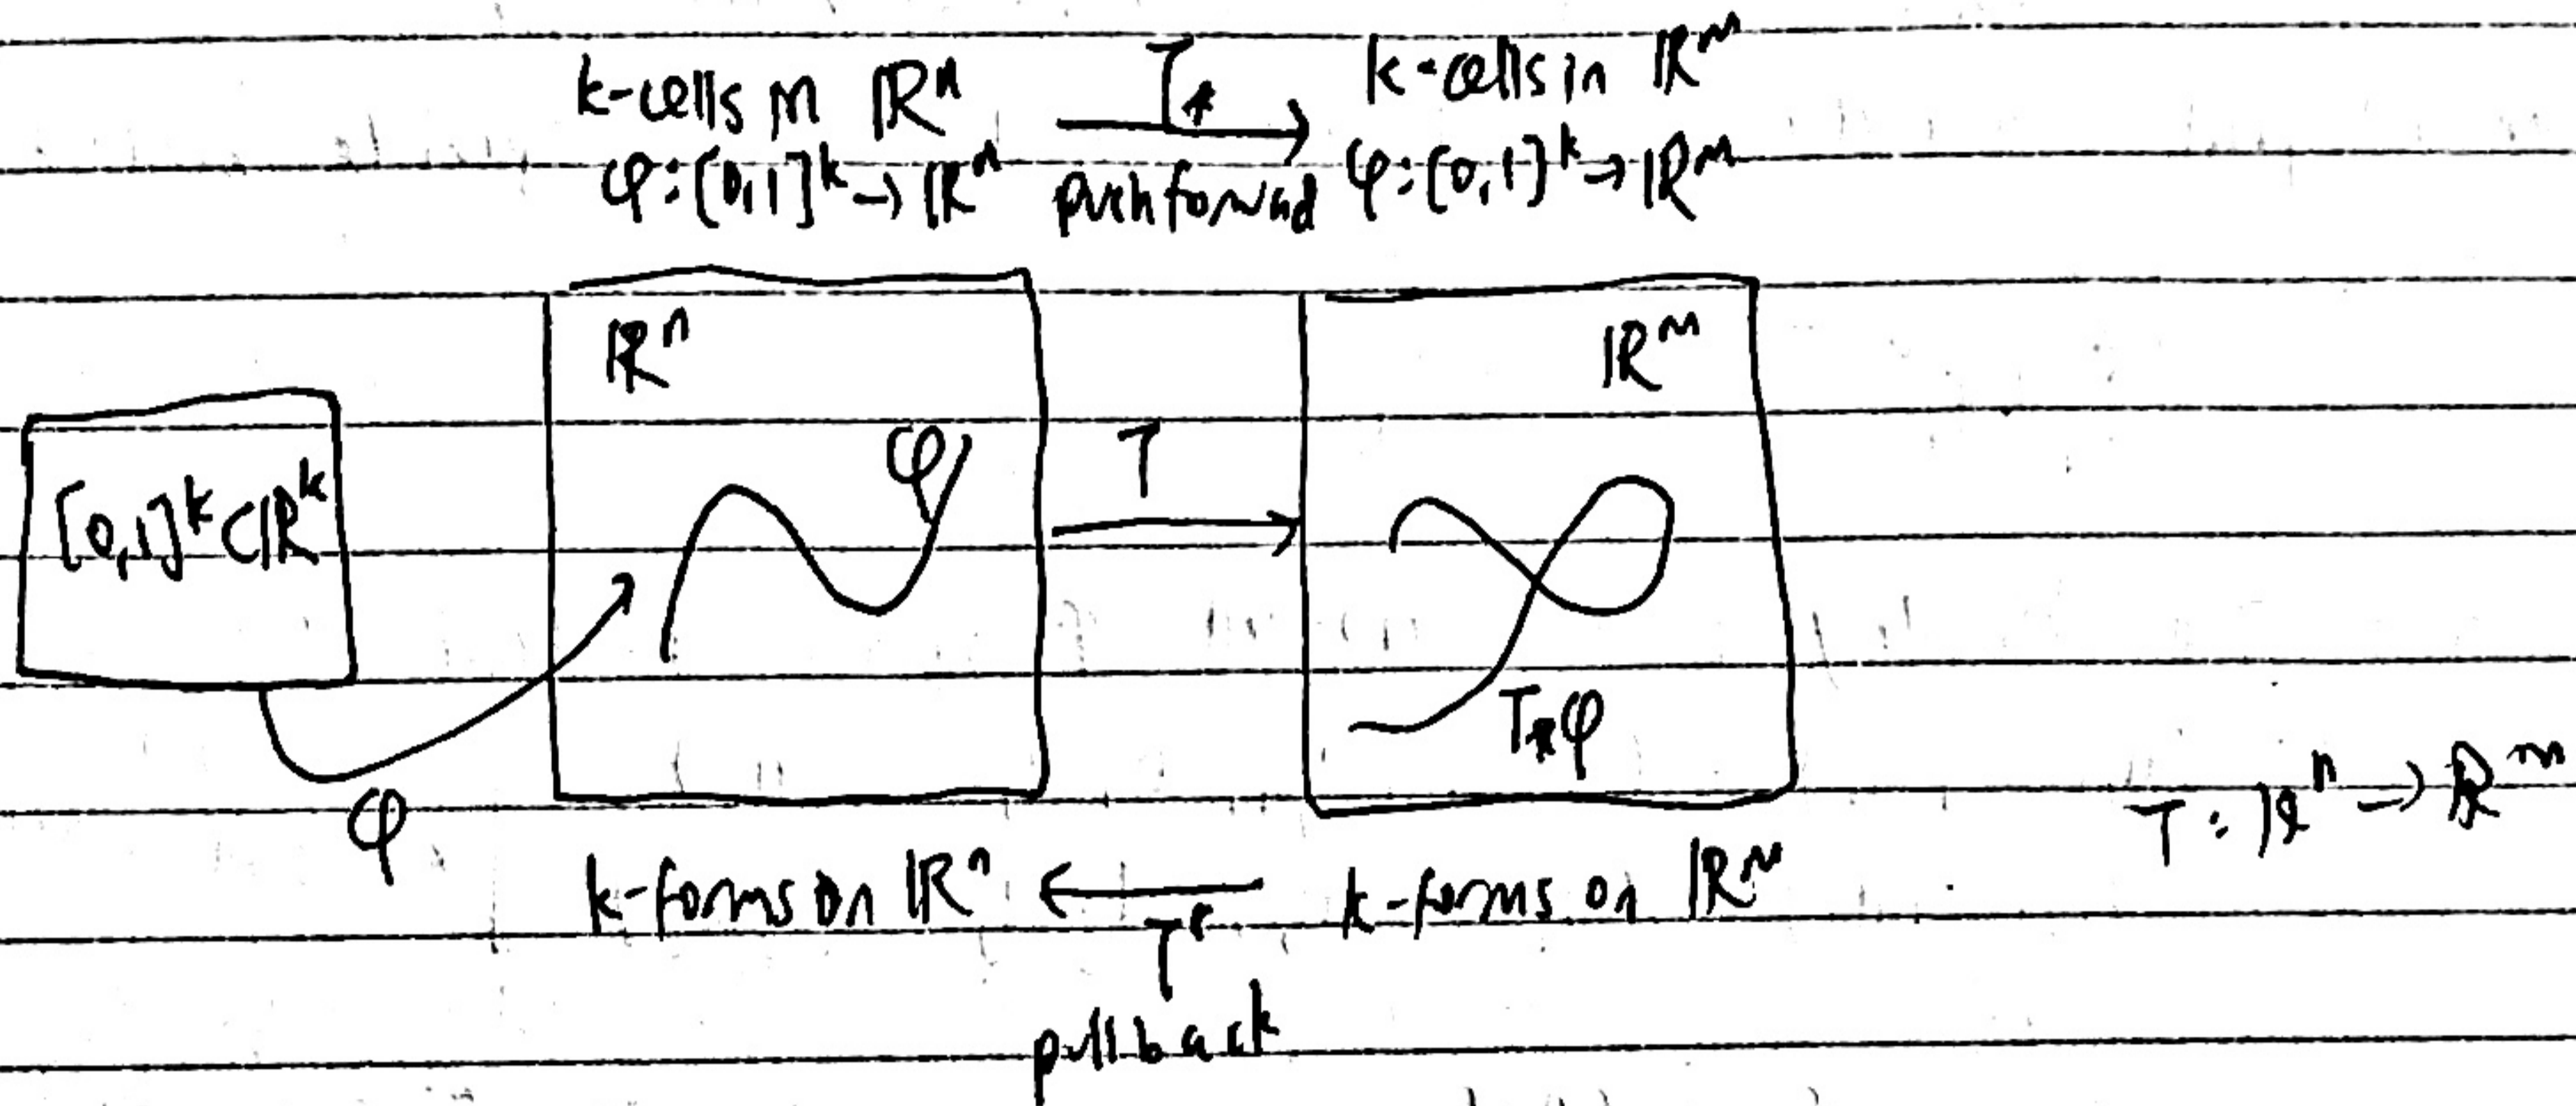 k-cells in ℝⁿ T_* k-cells in ℝᵐ
φ:[0,1]ᵏ→ℝⁿ pushforward φ:[0,1]ᵏ→ℝᵐ
ℝⁿ ℝᵐ
φ T
[0,1]ᵏ⊂ℝᵏ
T_*φ
φ T:ℝⁿ→ℝᵐ
k-forms on ℝⁿ k-forms on ℝᵐ
T*
pullback